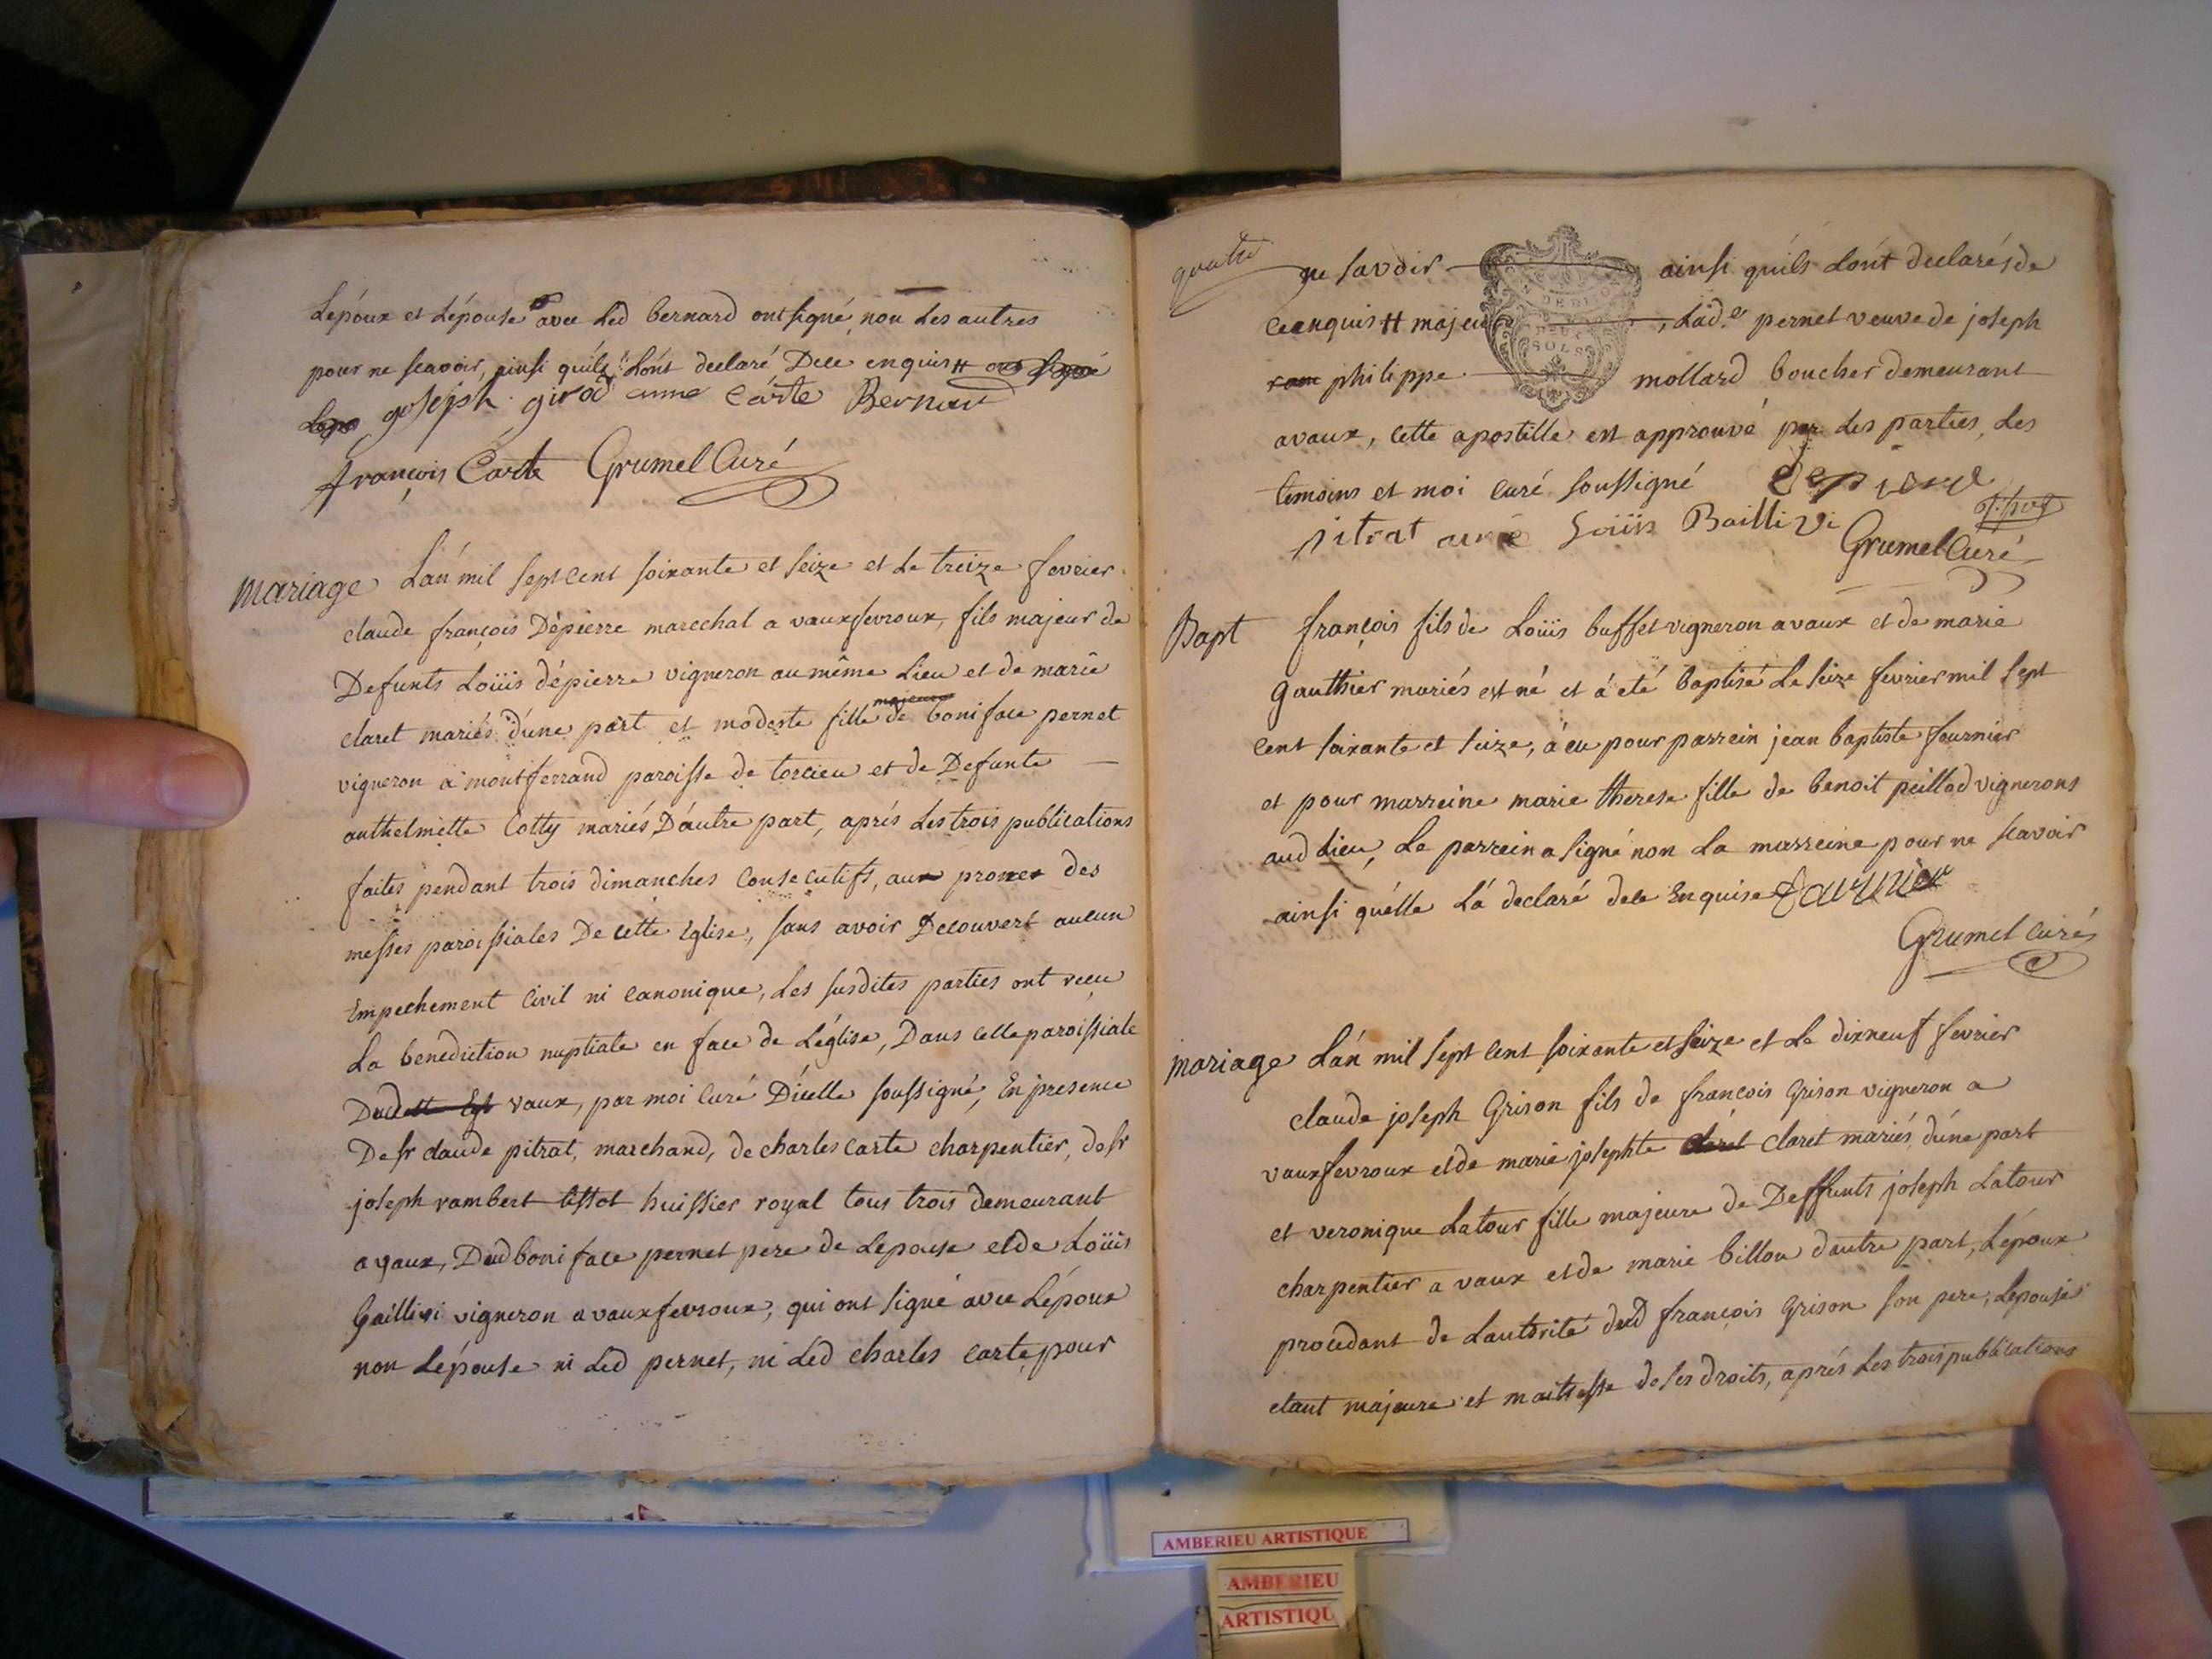 Lépoux et Lépouse avec Led bernard ont signé, non Les autres
pour ne scavoir, ainsi quíls Lónt declaré Dece enquis # ont signé
Lepo joseph girod anne Carte Bernard
françois Carte Grumel Curé
mariage Lán mil sept Cent soixante et seize et Le treize fevrier
claude françois Dépierre marechal a vauxfevroux, fils majeur de
Defunts Loüis dépierre vigneron au même Lieu et de marie
majeure
claret mariés d'úne part et modeste fille de boniface pernet
vigneron a montferrand paroisse de torcieu et de Defunte
anthelmette Cotty mariés D'áutre part, aprés Les trois publications
faites pendant trois dimanches Consecutifs, aux prones des
messes paroissiales De cette Eglise, sans avoir Decouvert aucun
Empechement Civil ni canonique, Les susdites parties ont recu
La benediction nuptiale en face de L'église, Dans celle paroissiale
Dud vaux, par moi Curé D'icelle soussigné, En presence
De sr claude pitrat, marchand, de charles carte charpentier, de sr
joseph rambert tissot huissier royal tous trois demeurant
a vaux, Dud boniface pernet pere de Lepouse et de Loüis
baillivi vigneron a vauxfevroux, qui ont signé avec Lépoux
non Lépouse ni Led pernet, ni Led charles carte, pour
quatre
ne savoir ainsi quíls Lónt declarés de
ce enquis # majeu , Lad.e pernet veuve de joseph
philippe mollard boucher demeurant
a vaux, Cette apostille est approuvé par Les parties, Les
temoins et moi curé soussigné depierre
pitrat ainé Loüis Baillivi
Grumel Curé
Bapt françois fils de Loüis buffet vigneron a vaux et de marie
gauthier mariés est né et á eté baptisé Le seize fevrier mil sept
Cent soixante et seize, á eu pour parrein jean baptiste fournier
et pour marreine marie therese fille de benoit peillod vignerons
aud Lieu, Le parrein a signé non La marreine pour ne scavoir
ainsi quélle Lá declaré dece Enquise fournier
Grumel Curé
mariage Lán mil sept Cent soixante et seize et Le dixneuf fevrier
claude joseph Grison fils de françois Grison vigneron a
vauxfevroux et de marie josephte claret claret mariés, d'úne part
et veronique Latour fille majeure de Deffunts joseph Latour
charpentier a vaux et de marie billon d'autre part, Lépoux
procedant de Lautorité dud françois Grison son pere, Lépouse
etant majeure et maitresse de ses droits, aprés Les trois publications
AMBERIEU ARTISTIQUE
AMBERIEU
ARTISTIQU